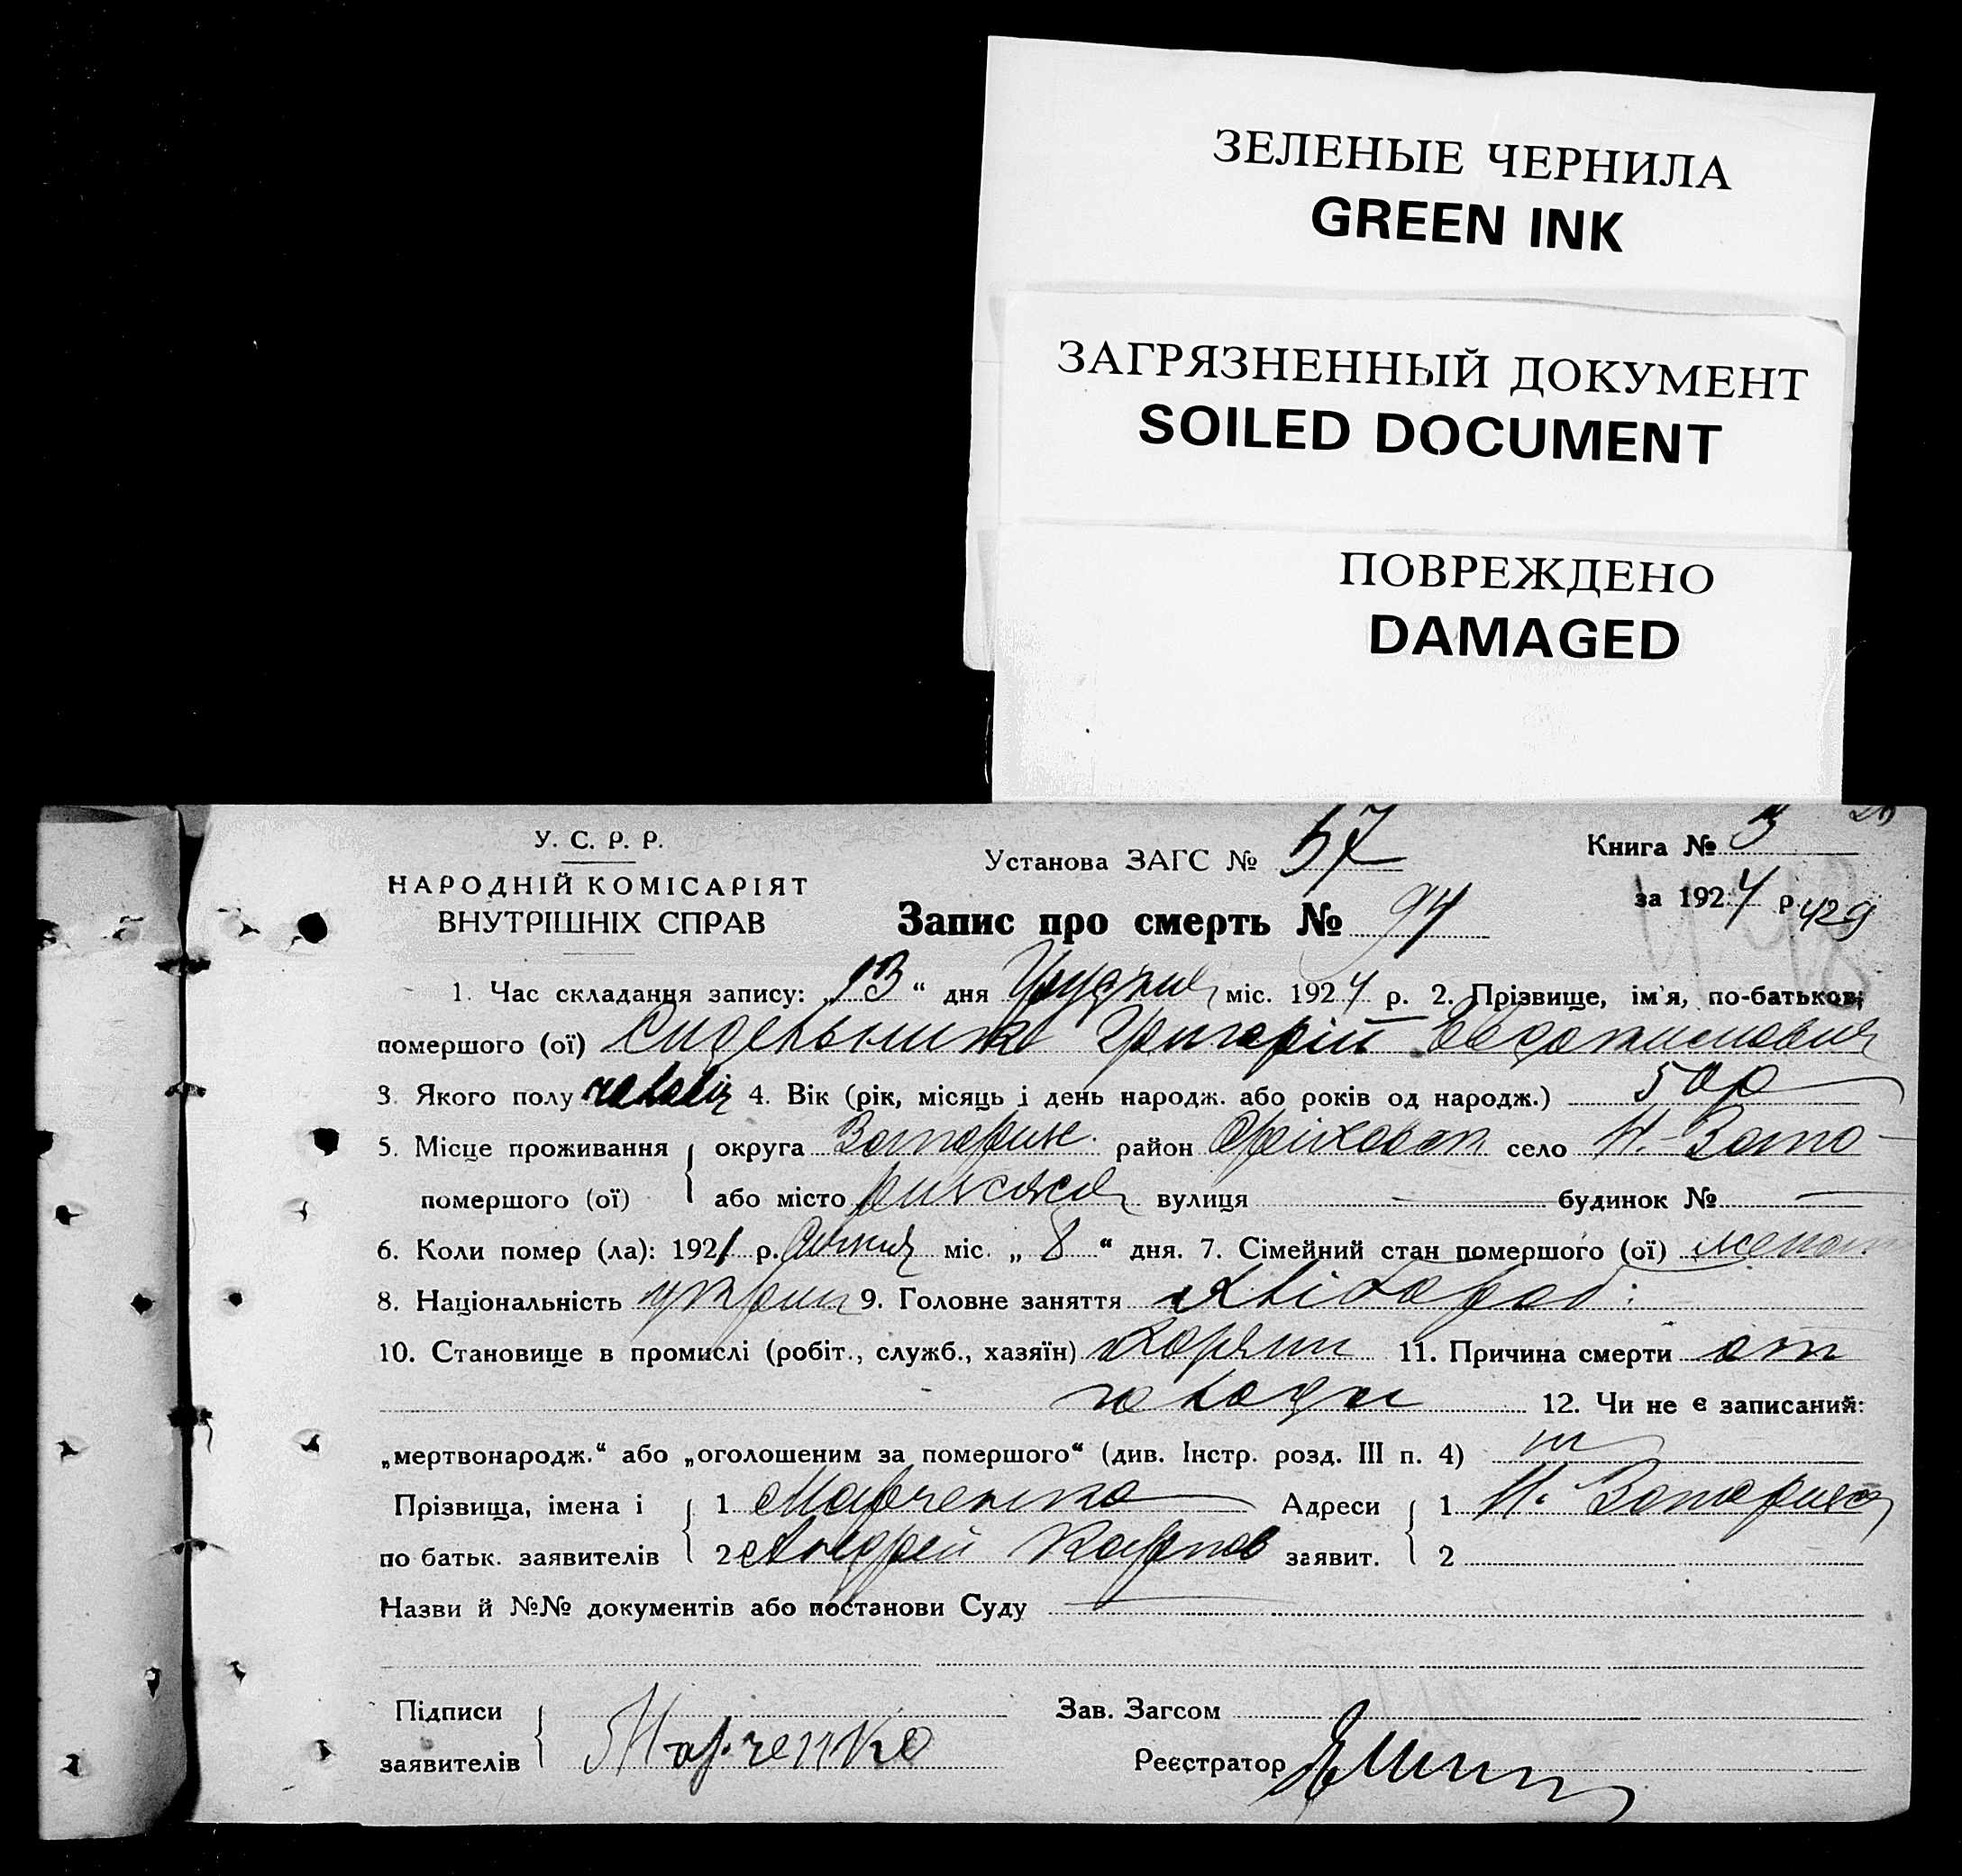 ЗЕЛЕНЫЕ ЧЕРНИЛА
GREEN INK
ЗАГРЯЗНЕННЫЙ ДОКУМЕНТ
SOILED DOCUMENT
ПОВРЕЖДЕНО
DAMAGED
У. С. Р. Р.
НАРОДНІЙ КОМІСАРІЯТ
ВНУТРІШНІХ СПРАВ
Установа ЗАГС № 57
Книга № 3
за 1924 р. 429
Запис про смерть № 94
1. Час складання запису: „13“ дня Грудня міс. 1924 р. 2. Прізвище, ім'я, по-батькові
помершого (ої) Сидельник Григорій
3. Якого полу чоловіч 4. Вік (рік, місяць і день народж. або років од народж.) 50р
5. Місце проживання округа Запоріж. район Оріховск село Н.-Запо-
помершого (ої) або місто вулиця — будинок № —
6. Коли помер (ла): 1921 р. міс. „8“ дня. 7. Сімейний стан помершого (ої) женат
8. Національність україн 9. Головне заняття хлібороб:
10. Становище в промислі (робіт., служб., хазяїн) хазяин 11. Причина смерти от
голода 12. Чи не є записаний:
„мертвонародж.“ або „оголошеним за помершого“ (див. Інстр. розд. III п. 4)
Прізвища, імена і 1 Марченко Адреси 1
по батьк. заявителів 2 Андрей Карпов заявит. 2
Назви й №№ документів або постанови Суду —
Підписи Зав. Загсом
заявителів Марченко Реєстратор